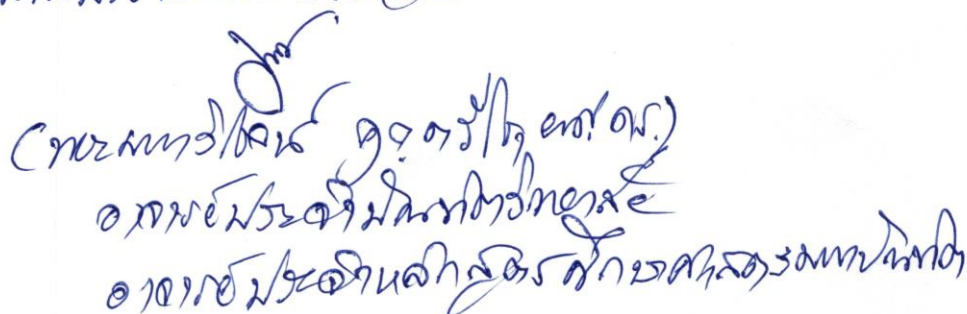 (พระมหาวิโรจน์ คุตฺตวีโร, ผศ. ดร.)
อาจารย์ประจำบัณฑิตวิทยาลัย
อาจารย์ประจำหลักสูตรศึกษาศาสตรมหาบัณฑิต